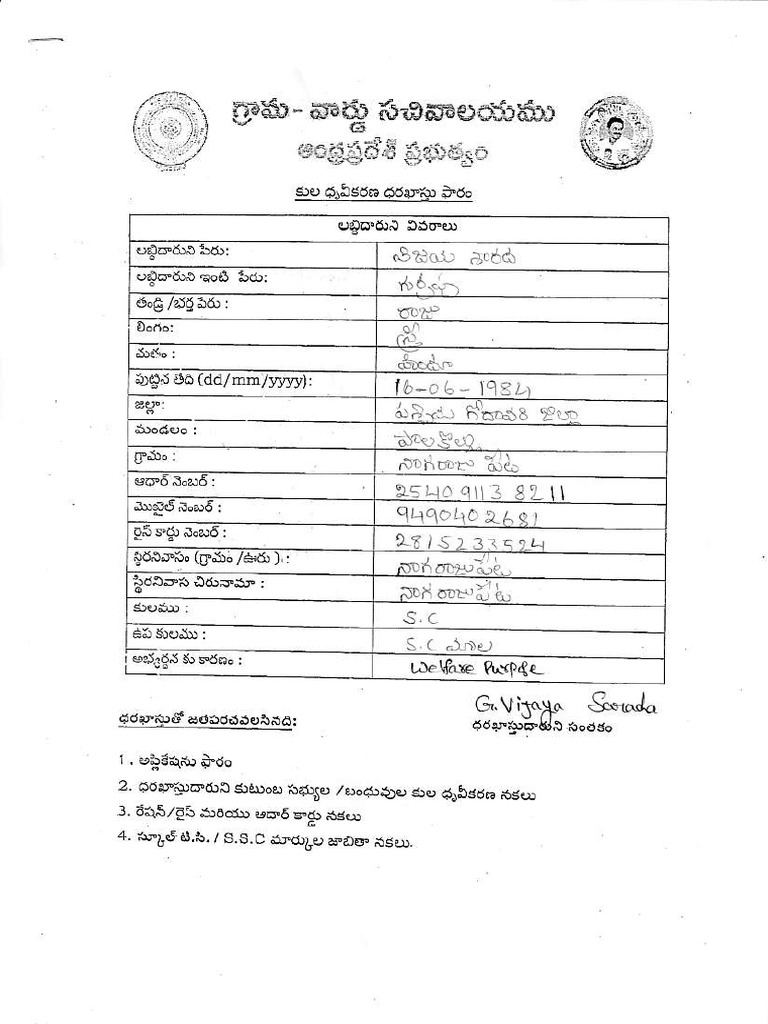 గ్రామ - వార్డు సచివాలయము
ఆంధ్రప్రదేశ్ ప్రభుత్వం
కుల ధృవీకరణ ధరఖాస్తు ఫారం
లబ్ధిదారుని వివరాలు
లబ్ధిదారుని పేరు: విజయ శారద
లబ్ధిదారుని ఇంటి పేరు:
తండ్రి /భర్త పేరు : రాజు
లింగం: స్త్రీ
మతం : హిందూ
పుట్టిన తేది (dd/mm/yyyy): 16-06-1984
జిల్లా: పశ్చిమ గోదావరి జిల్లా
మండలం : పాలకొల్లు
గ్రామం : నాగరాజు పేట
ఆధార్ నెంబర్ : 2540 9113 8211
మొబైల్ నెంబర్ : 9490402681
రైస్ కార్డు నెంబర్ : 2815233524
స్థిరనివాసం (గ్రామం /ఊరు ) : నాగరాజుపేట
స్థిరనివాస చిరునామా : నాగరాజుపేట
కులము : S.C
ఉప కులము : S.C మాల
అభ్యర్ధన కు కారణం : Welfare Purpose
G. Vijaya Sarada
ధరఖాస్తుదారుని సంతకం
ధరఖాస్తుతో జతపరచవలసినది:
1 . అప్లికేషను ఫారం
2. ధరఖాస్తుదారుని కుటుంబ సభ్యుల /బంధువుల కుల ధృవీకరణ నకలు
3. రేషన్/రైస్ మరియు ఆదార్ కార్డు నకలు
4. స్కూల్ టి.సి. / S.S.C మార్కుల జాబితా నకలు.